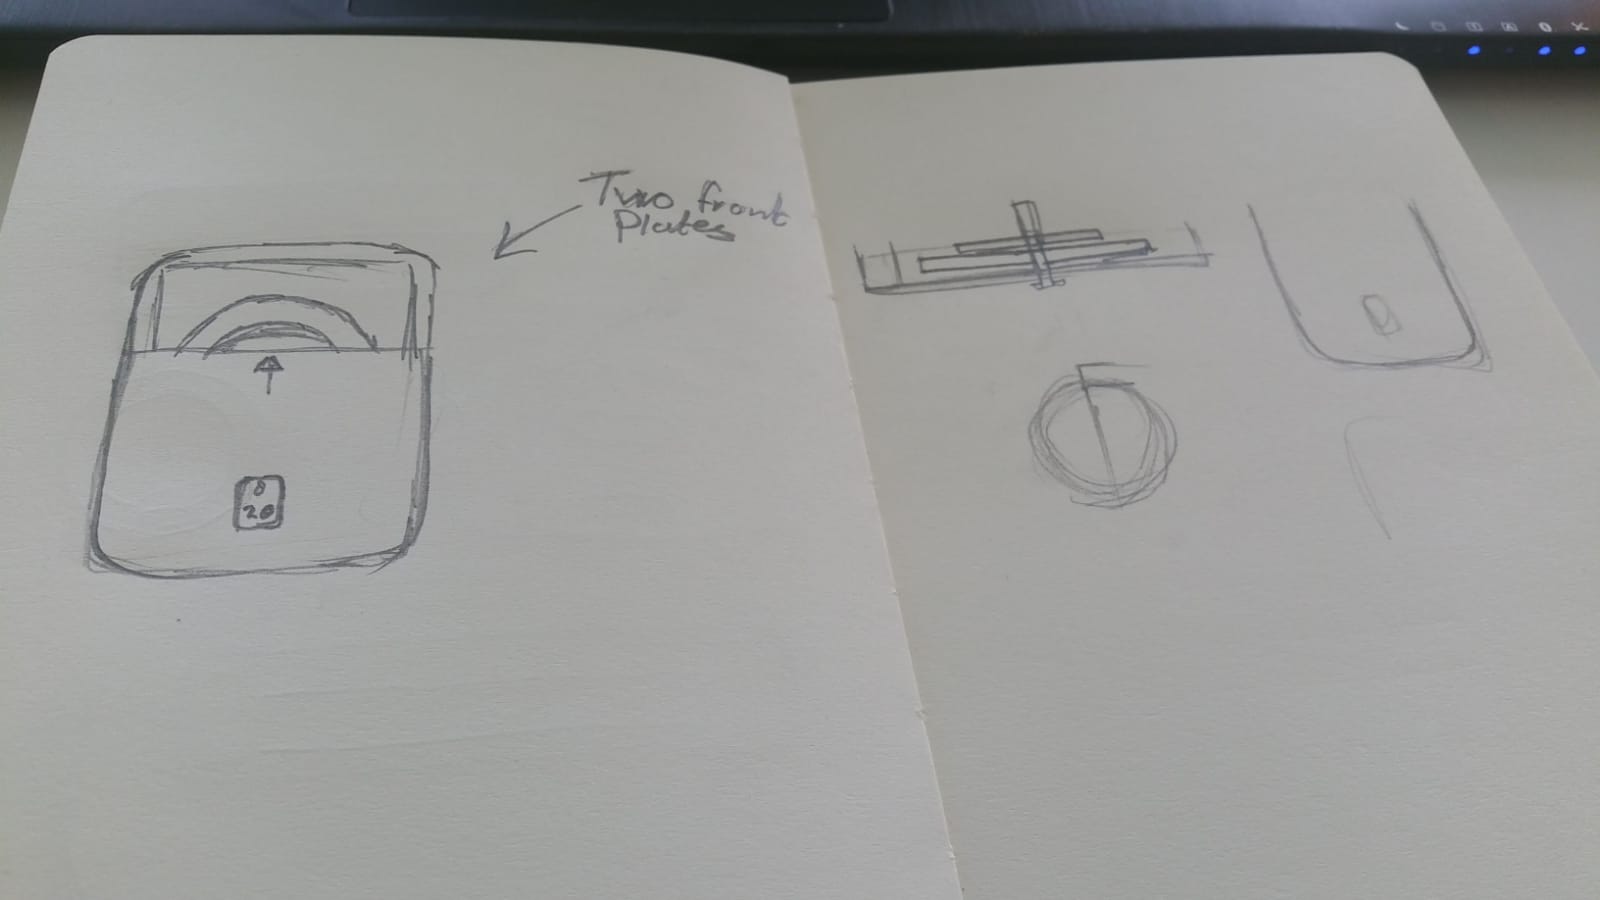 Two front
Plates
0
20